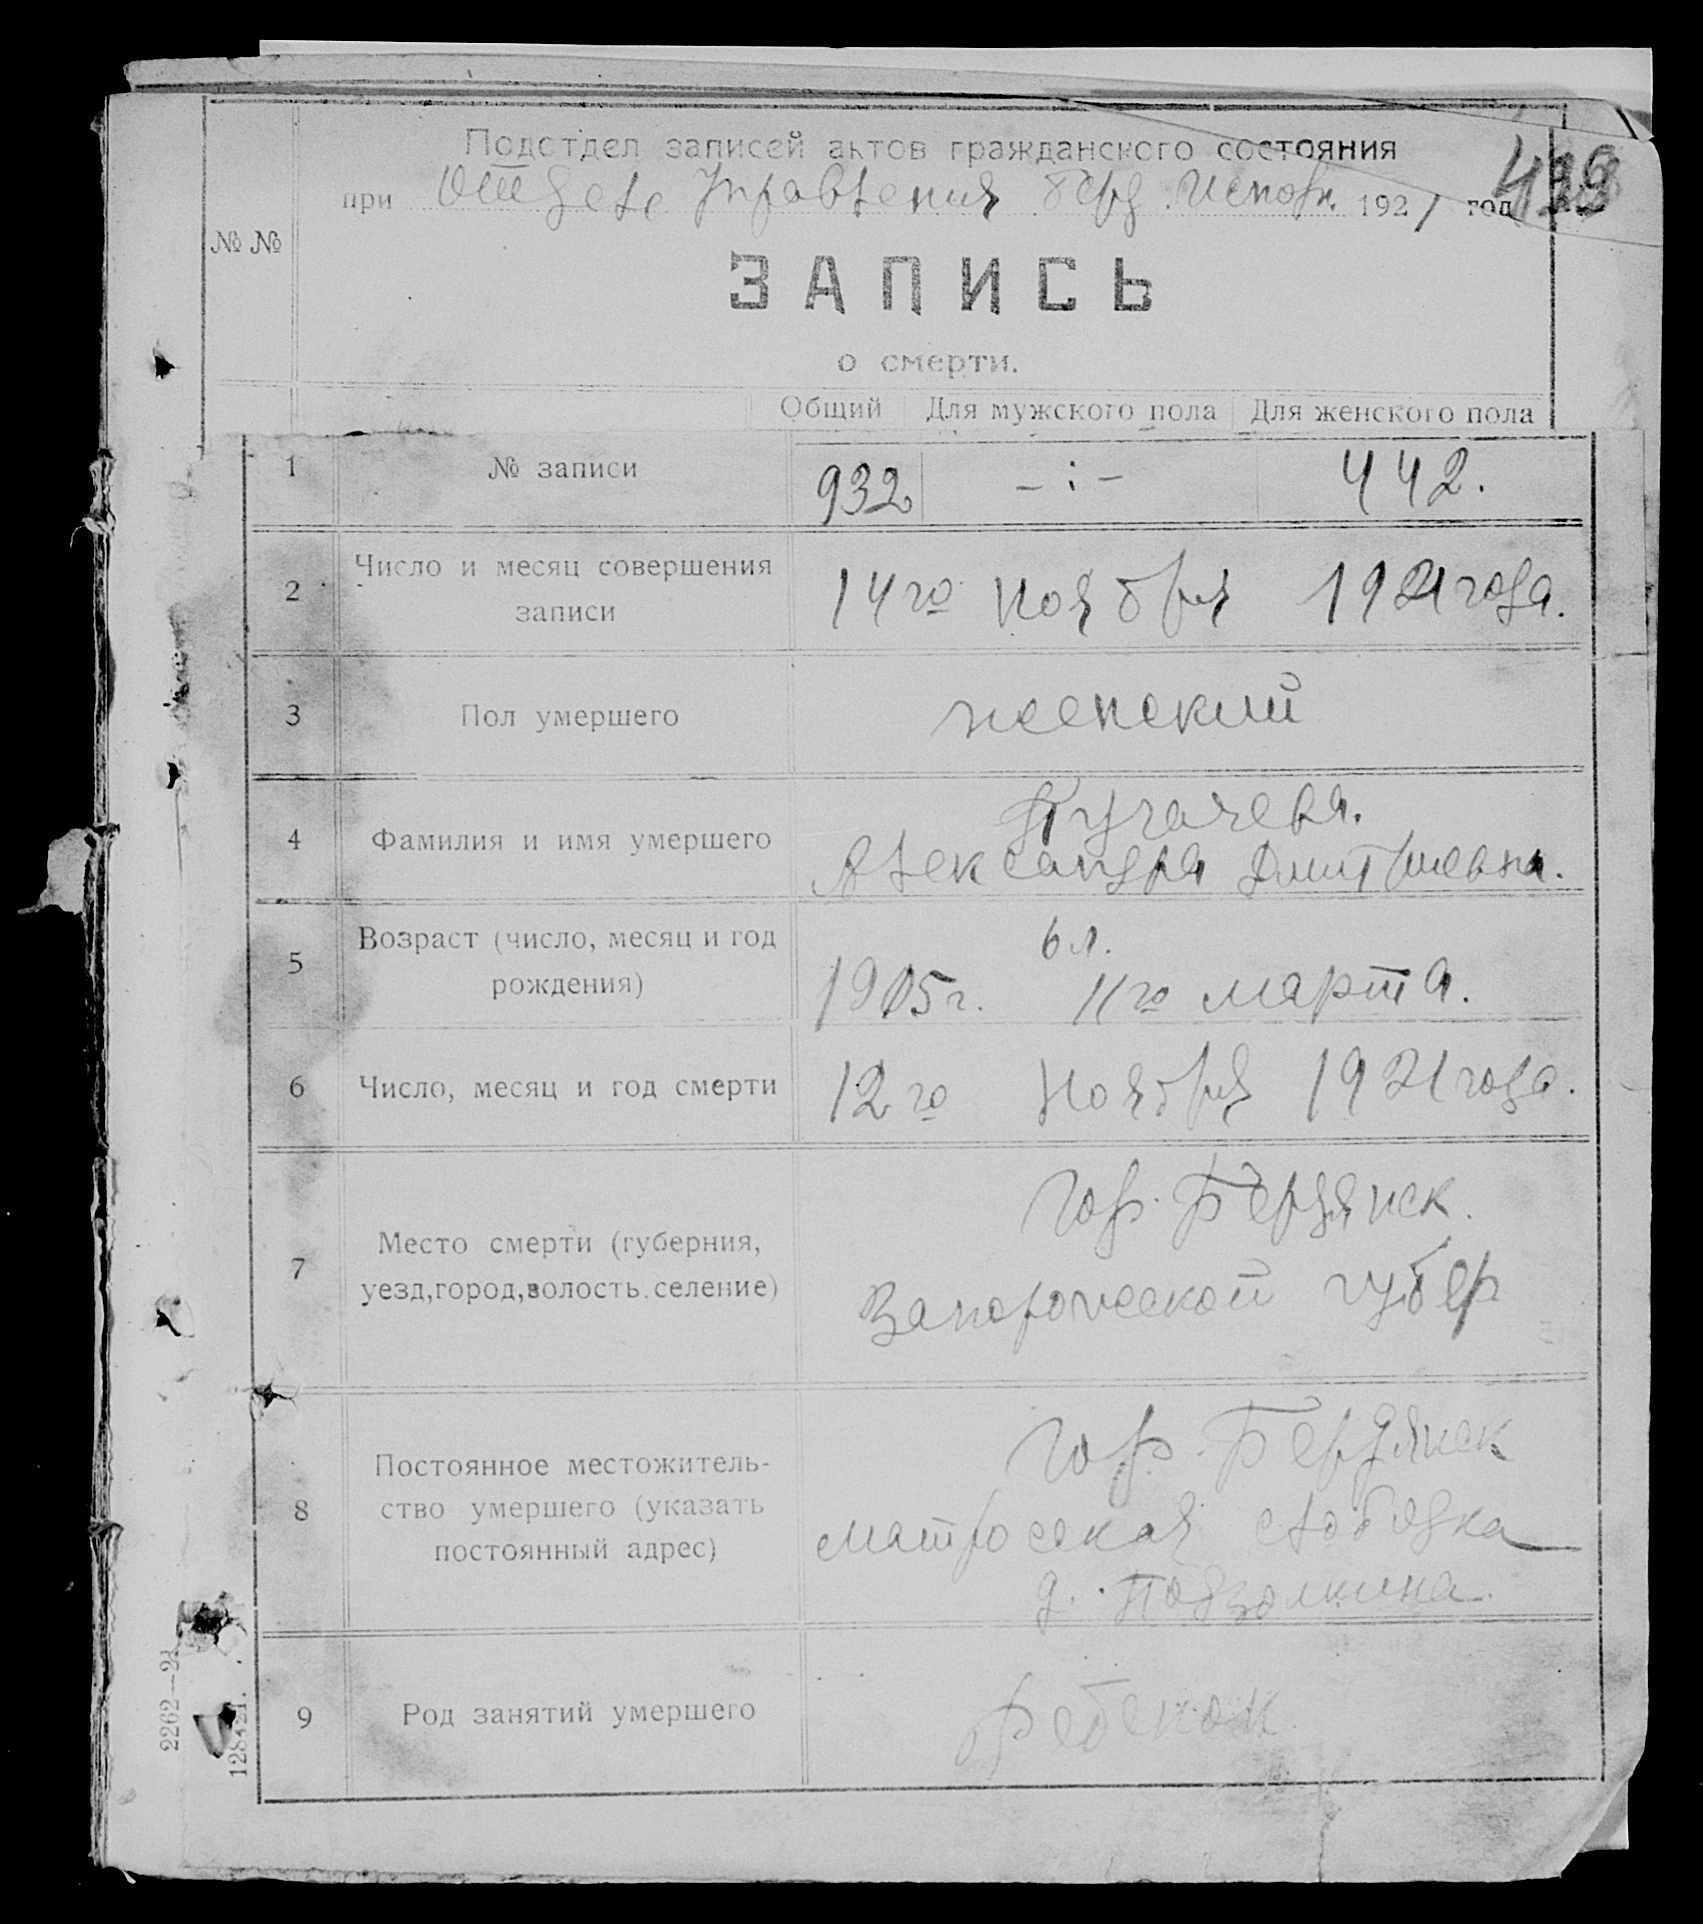 Подотдел записей актов гражданского состояния
при Отделе Управления берд. Исполк. 1921 год
№ №
ЗАПИСЬ
о смерти.
Общий Для мужского пола Для женского пола
1 № записи 932 – : – 442.
2 Число и месяц совершения записи 14го Ноября 1921 года.
3 Пол умершего женский
4 Фамилия и имя умершего Пугачева.
Александра Дмитриевна.
5 Возраст (число, месяц и год рождения) 6 л.
1915 г. 11го марта.
6 Число, месяц и год смерти 12го Ноября 1921 года.
7 Место смерти (губерния, уезд, город, волость. селение) гор. Бердянск.
Запорожской губер
8 Постоянное местожитель-
ство умершего (указать
постоянный адрес) гор. Бердянск
матросская слободка
д.
9 Род занятий умершего ребенок.
2262—21